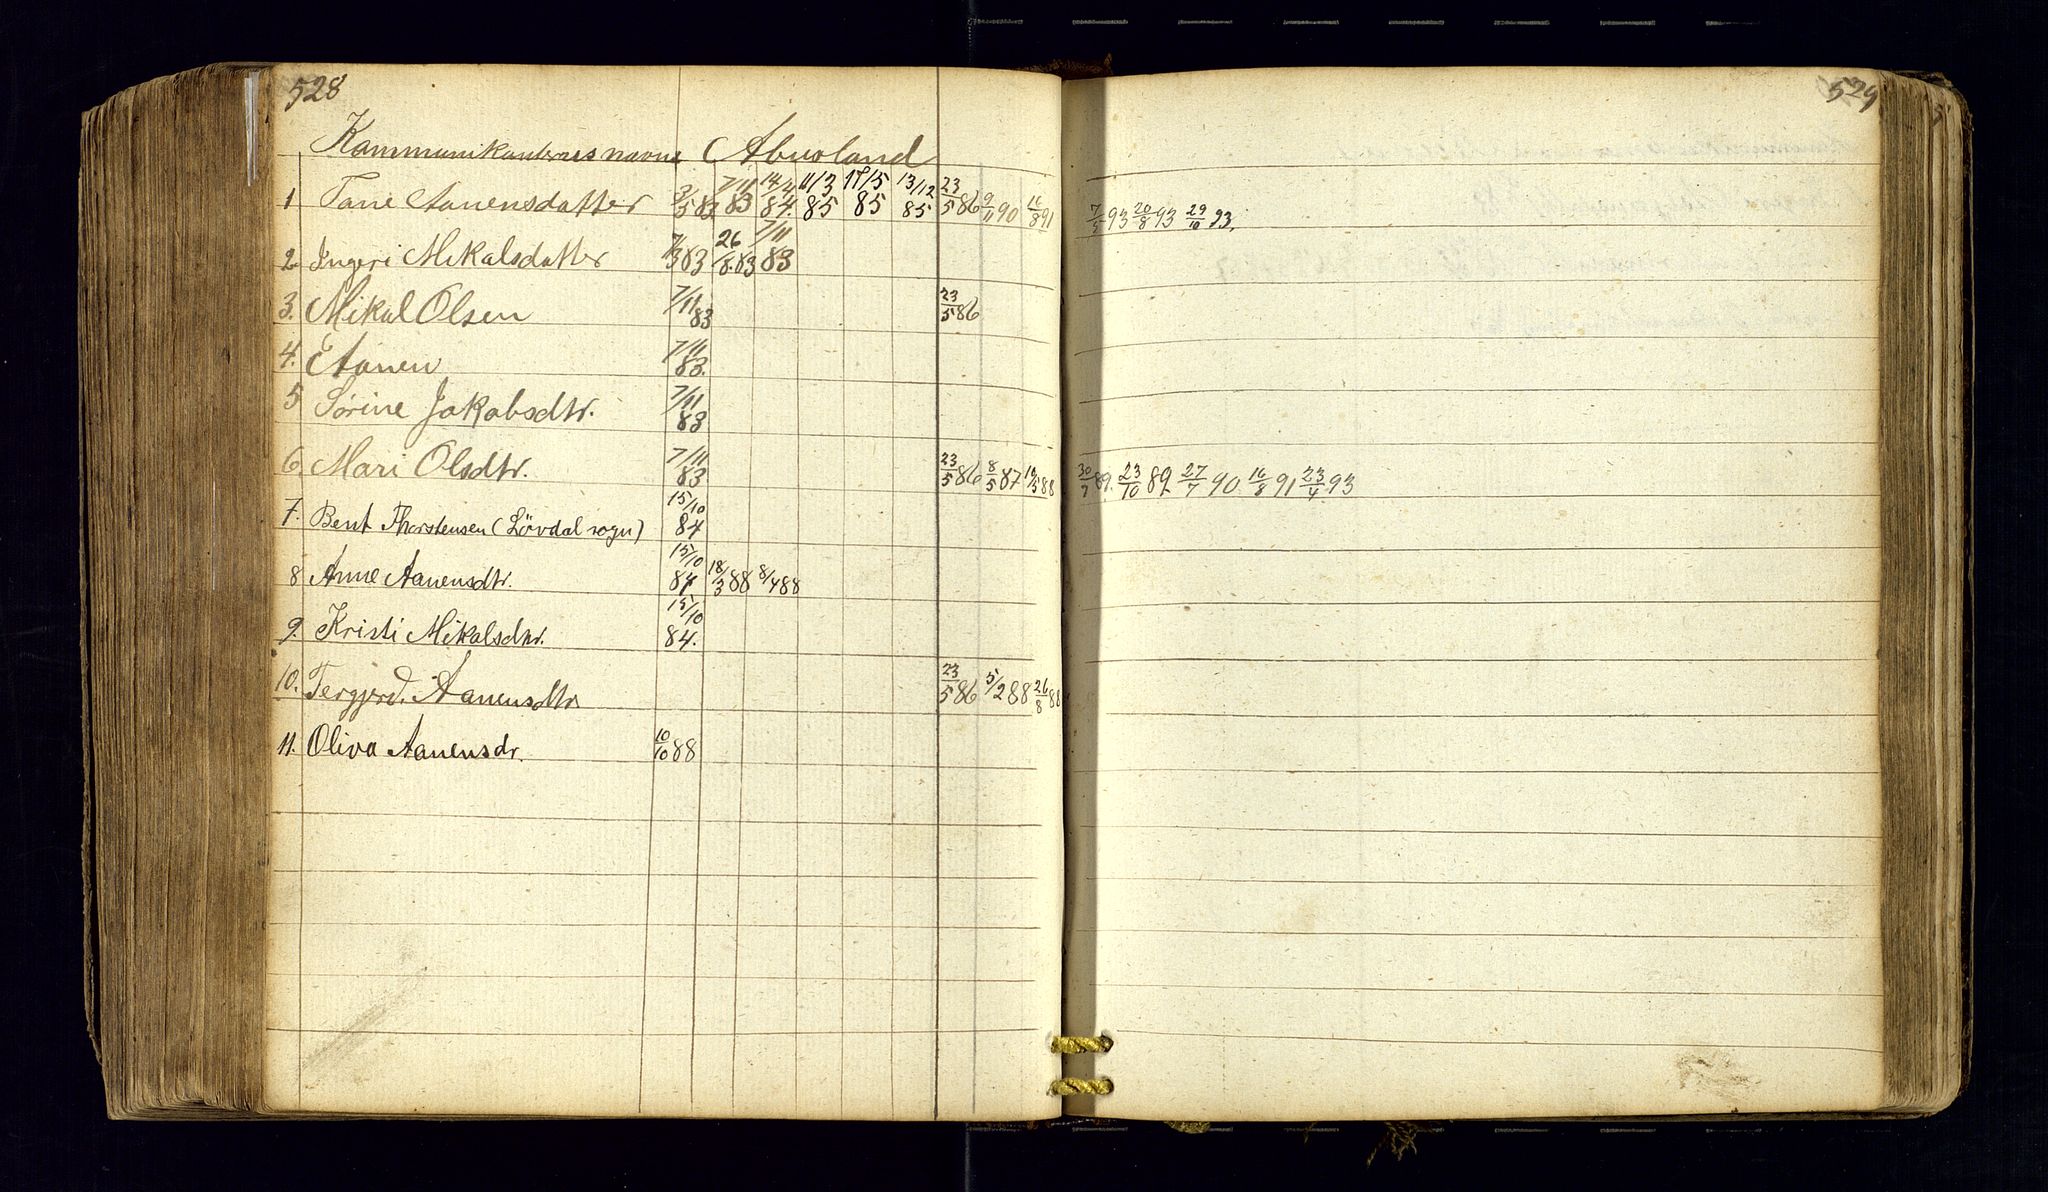 528
Kommunikanternes navne Abusland
1 Tane Aanensdatter 3/5 83 7/11 83 14/4 84. 11/3 85 17/5 85 13/12 85 23/5 86 9/11 90 16/8 91
2 Ingeri Mikalsdatter 7/3 83 26/8. 83 7/11 83
3. Mikal Olsen 7/11 83 23/5 86
4. E Aanen 7/11 83.
5 Sørine Jakobsdtr. 7/11 83
6. Mari Olsdtr. 7/11 83 23/5 86 8/5 87 10/5 88
7. Bent Thorstensen (Lövdal sogn) 15/10 84
8 Anne Aanensdtr. 15/10 84 18/3 88 8/4 88
9. Kristi Mikalsdtr. 15/10 84.
10. Tergjerd. Aanensdtr 23/5 86 5/2 88 26/8 88
11. Oliva Aanensdr. 10/10 88
529
7/5 93 20/8 93 29/10 93.
30/7 89. 23/10 89 27/7 90 16/8 91 23/4 93